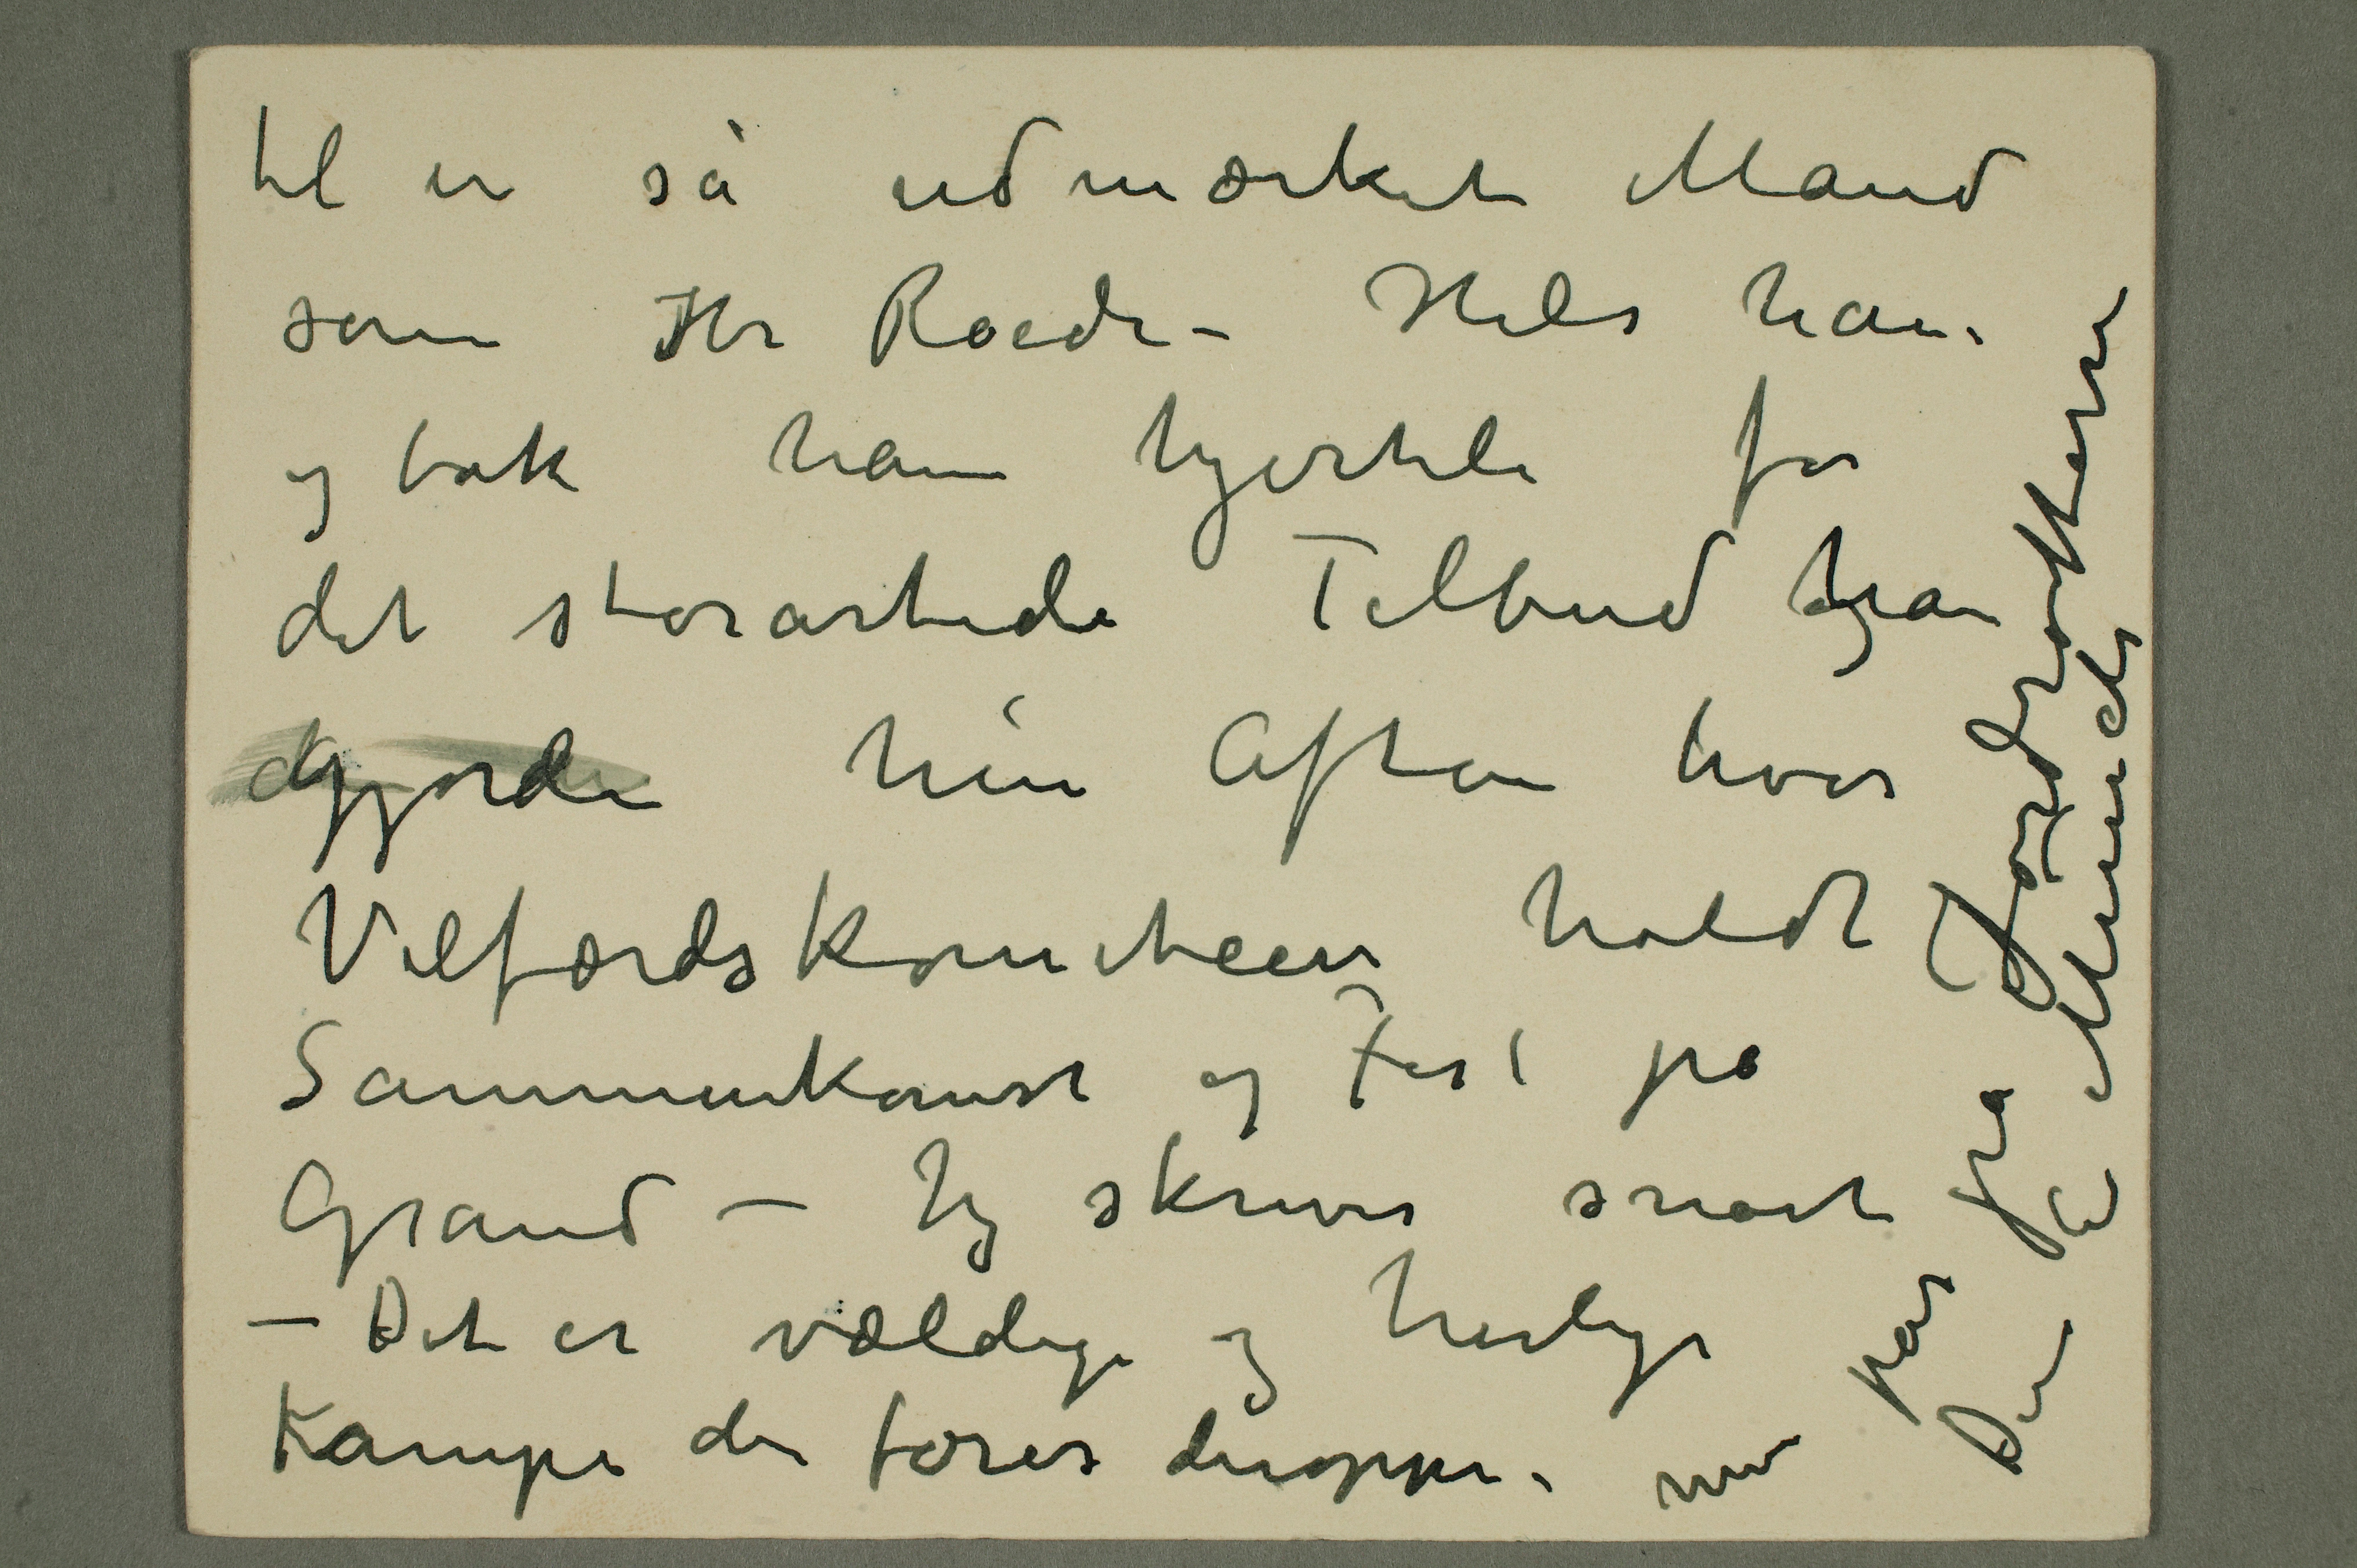 til en så udmærket Mand
som Hr Roede – Hils ham
og tak ham hjerteli for
det storartede Tilbud han
gjorde hin Aften hvor
Velfærdskomiteen holdt
Sammenkomst og Fest på
Grand – Jeg skriver snart
– Det er vældige og herlige
Kampe der føres deroppe.
pas på Jorddrotterne
Din E Munch